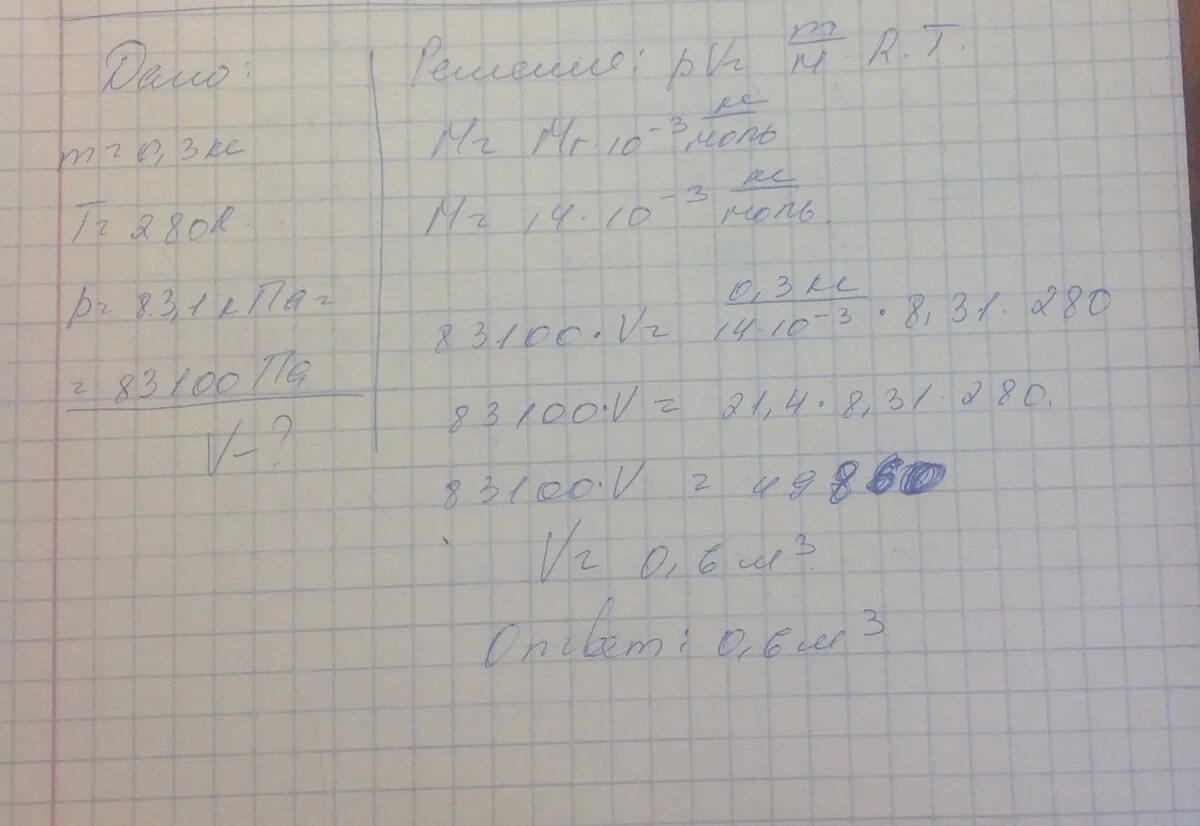 Дано:
m = 0,3 кг
T = 280К.
p = 83,1 кПа =
= 83100 Па
V - ?
Решение: pV = m/M · R · T.
M = Mr · 10⁻³ кг/моль
M = 14 · 10⁻³ кг/моль.
83100 · V = 0,3 кг/14·10⁻³ · 8,31 · 280
83100 · V = 21,4 · 8,31 · 280.
83100 · V = 49860
V = 0,6 м³
Ответ: 0,6 м³